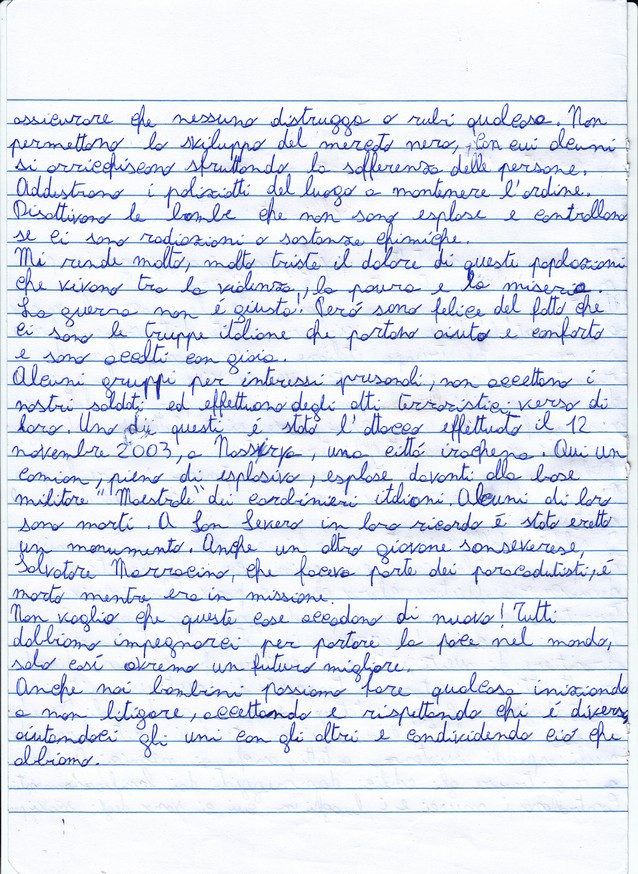 assicurare che nessuno distrugga o rubi qualcosa. Non
permettono lo sviluppo del mercato nero, con cui alcuni
si arricchiscono sfruttando la sofferenza delle persone.
Addestrano i poliziotti del luogo a mantenere l'ordine.
Disattivano le bombe che non sono esplose e controllano
se ci sono radiazioni o sostanze chimiche.
Mi rende molto, molto triste il dolore di queste popolazioni
che vivono tra la violenza, la paura e la miseria.
La guerra non è giusta! Però sono felice del fatto che
ci sono le truppe italiane che portano aiuto e conforto
e sono accolti con gioia.
Alcuni gruppi per interessi presonali, non accettano i
nostri soldati ed effettuano degli atti terroristici verso di
loro. Uno di questi è stato l'attacco effettuato il 12
novembre 2003, a Nassirya, una città irachena. Qui un
camion, pieno di esplosivo, esplose davanti alla base
militare "Maestrale" dei carabinieri italiani. Alcuni di loro
sono morti. A San Severo in loro ricordo è stato eretto
un monumento. Anche un altro giovane sanseverese,
Salvatore Marracino, che faceva parte dei paracadutisti, è
morto mentre era in missione.
Non voglio che queste cose accadano di nuovo! Tutti
dobbiamo impegnarci per portare la pace nel mondo,
solo così avremo un futuro migliore.
Anche noi bambini possiamo fare qualcosa iniziando
a non litigare, accettando e rispettando chi è diverso,
aiutandoci gli uni con gli altri e condividendo ciò che
abbiamo.